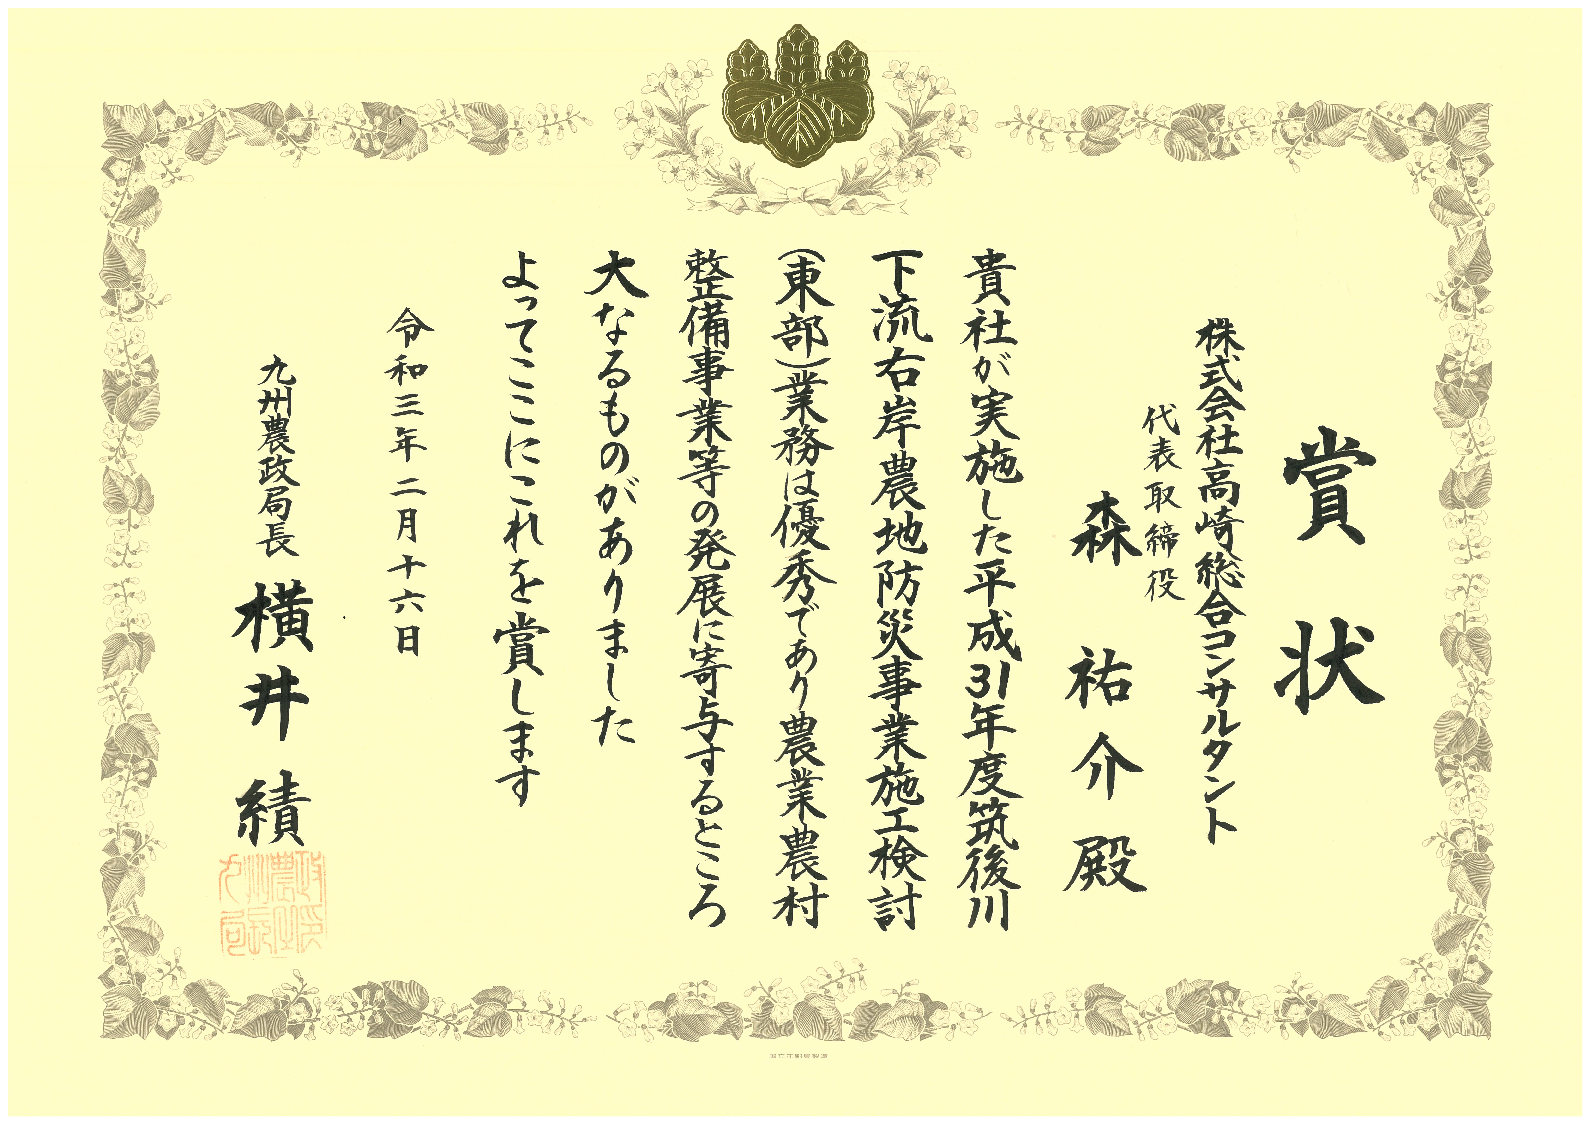 賞状
株式会社高崎総合コンサルタント
代表取締役
森祐介殿
貴社が実施した平成31年度筑後川
下流右岸農地防災事業施工検討
(東部)業務は優秀であり農業農村
整備事業等の発展に寄与するところ
大なるものがありました
よってここにこれを賞します
令和三年二月十六日
九州農政局長
横井績